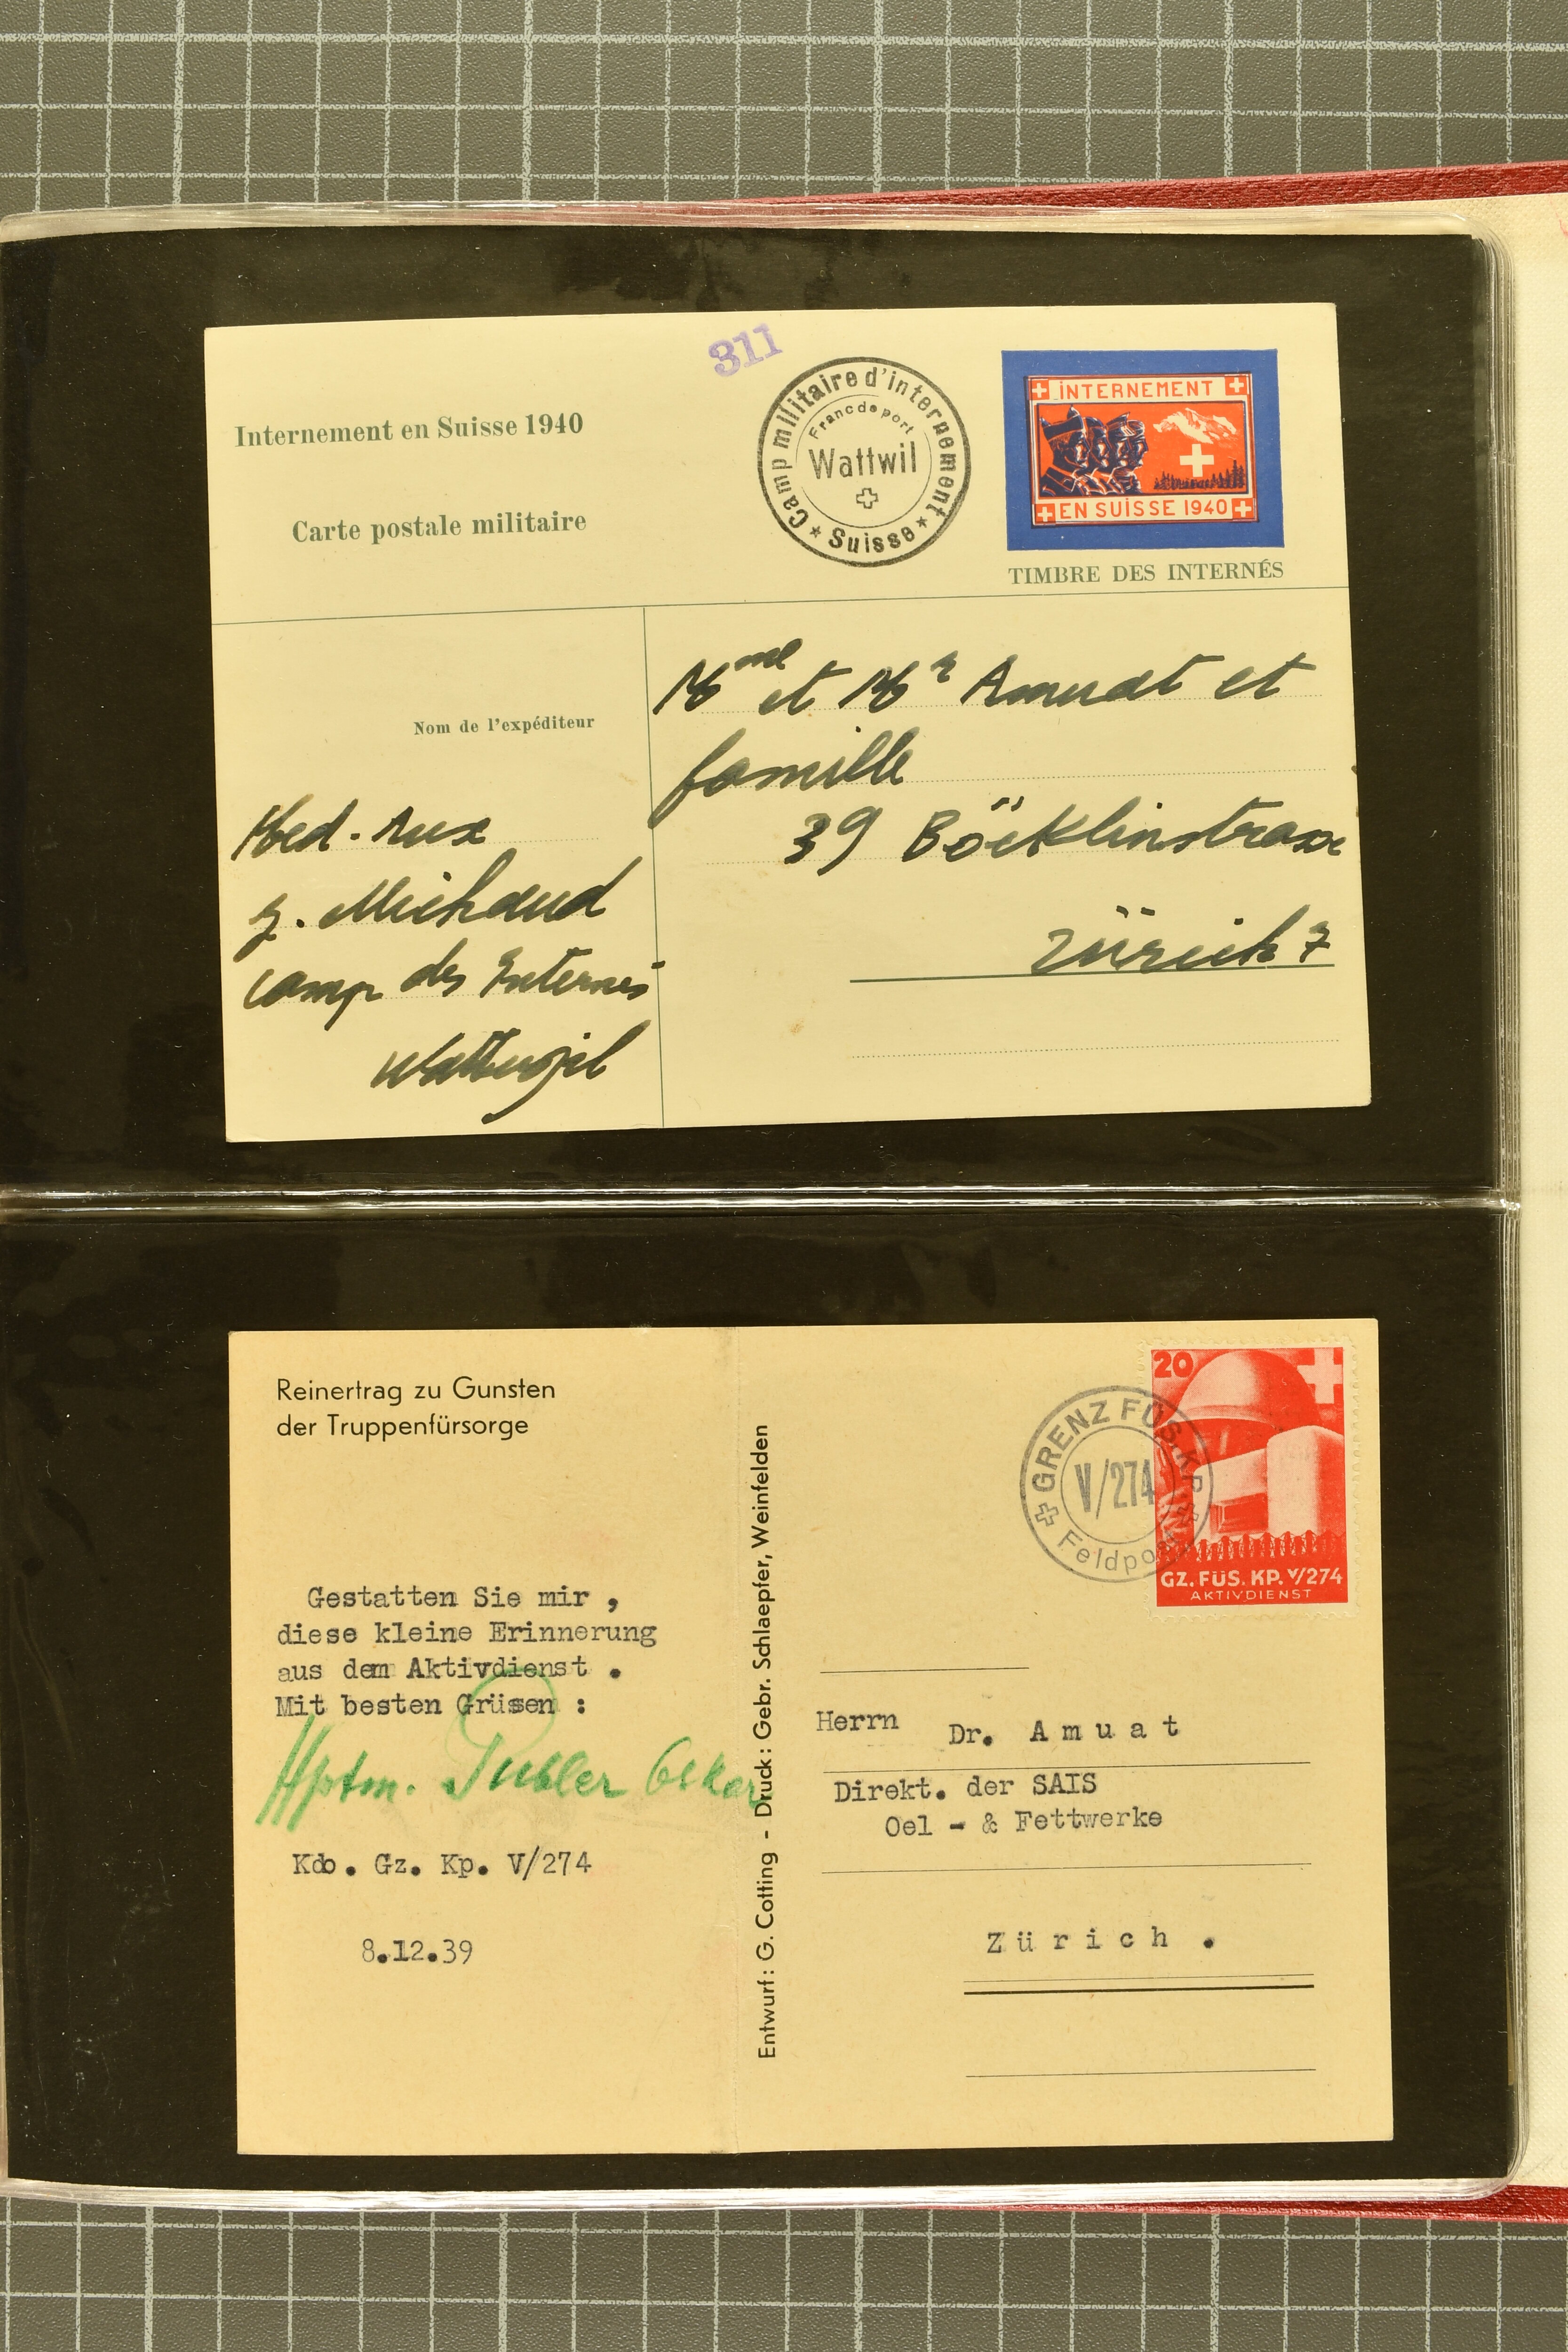 311
Internement en Suisse 1940
Carte postale militaire
★ Camp militaire d'internement ★ Suisse
Franc de port
Wattwil
INTERNEMENT
EN SUISSE 1940
TIMBRE DES INTERNÉS
Nom de l'expéditeur
Med. Aux
g. Michaud
camp des Internés
Wattwil
Mme et Mr Amuat et
famille
39 Böcklinstrasse
Zürich 7
Reinertrag zu Gunsten
der Truppenfürsorge
Gestatten Sie mir ,
diese kleine Erinnerung
aus dem Aktivdienst .
Mit besten Grüsen :
Hptm. Oskar
Kdo. Gz. Kp. V/274
8.12.39
Entwurf: G. Cotting - Druck: Gebr. Schlaepfer, Weinfelden
GRENZ FÜS. KP.
V/274
Feldpost
20
GZ. FÜS. KP. V/274
AKTIVDIENST
Herrn Dr. Amuat
Direkt. der SAIS
Oel - & Fettwerke
Zürich .